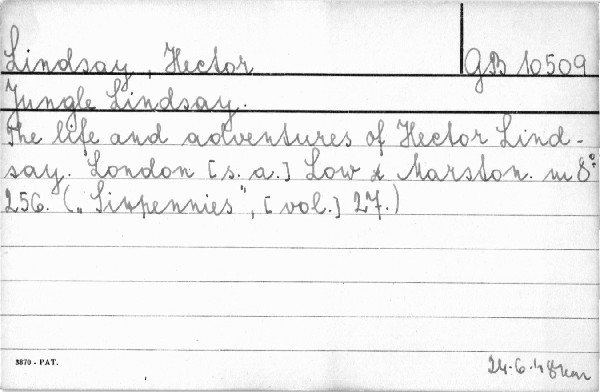 Lindsay, Hector
GB 10509
Jungle Lindsay.
The life and adventures of Hector Lind-
say. London [s. a.] Low & Marston. m 8°.
256. („Sixpennies", [vol.] 27.)
3870 - PAT.
24.6.48